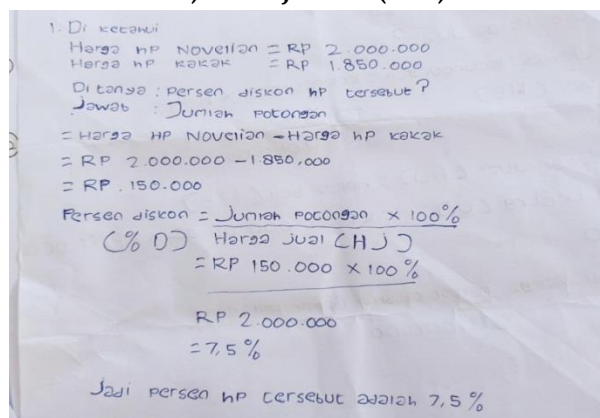 1. Di ketahui
Harga hp Novelian = RP 2.000.000
Harga hp kakak = RP 1.850.000
Di tanya : persen diskon hp tersebut?
Jawab : Jumlah potongan
= Harga HP Novelian - Harga hp kakak
= RP 2.000.000 - 1.850.000
= RP. 150.000
Persen diskon = Jumlah potongan x 100%
(% D) Harga jual (HJ)
= RP 150.000 x 100%
RP 2.000.000
= 7,5 %
Jadi persen hp tersebut adalah 7,5 %